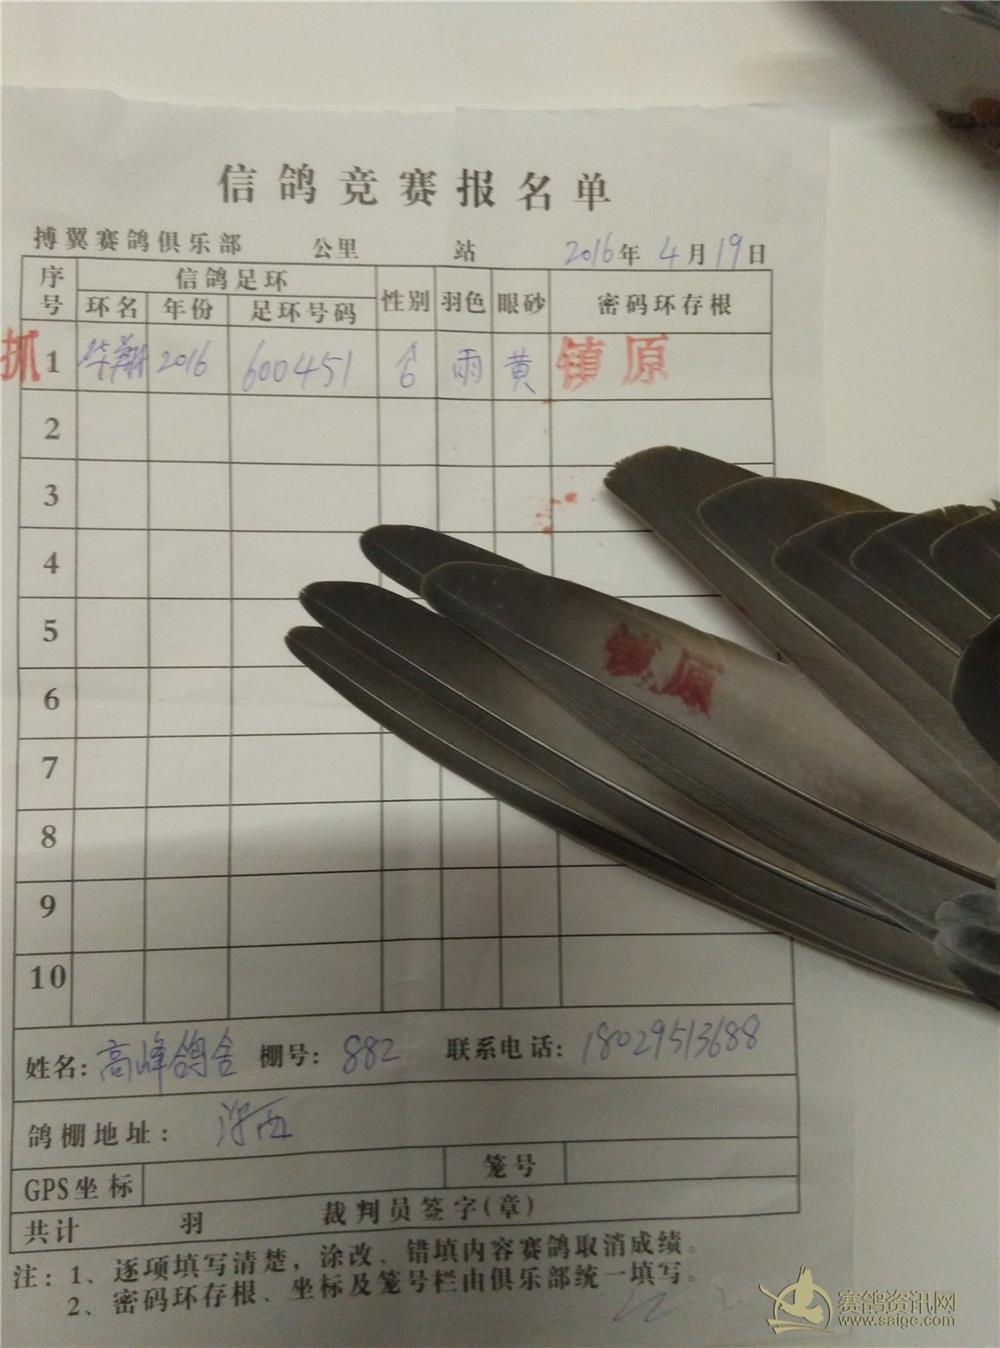 信鸽竞赛报名单
搏翼赛鸽俱乐部 公里 站 2016年 4月19日
序号 信鸽足环 性别 羽色 眼砂 密码环存根
环名 年份 足环号码
抓 1 华翔 2016 600451 雨 黄 镇原
2
3
4
5
镇原
6
7
8
9
10
姓名:高峰鸽舍 棚号:882 联系电话:18029513688
鸽棚地址:
GPS坐标 笼号
共计 羽 裁判员签字(章)
注:1、逐项填写清楚,涂改、错填内容赛鸽取消成绩。
2、密码环存根、坐标及笼号栏由俱乐部统一填写。
赛鸽资讯网
www.saigc.com